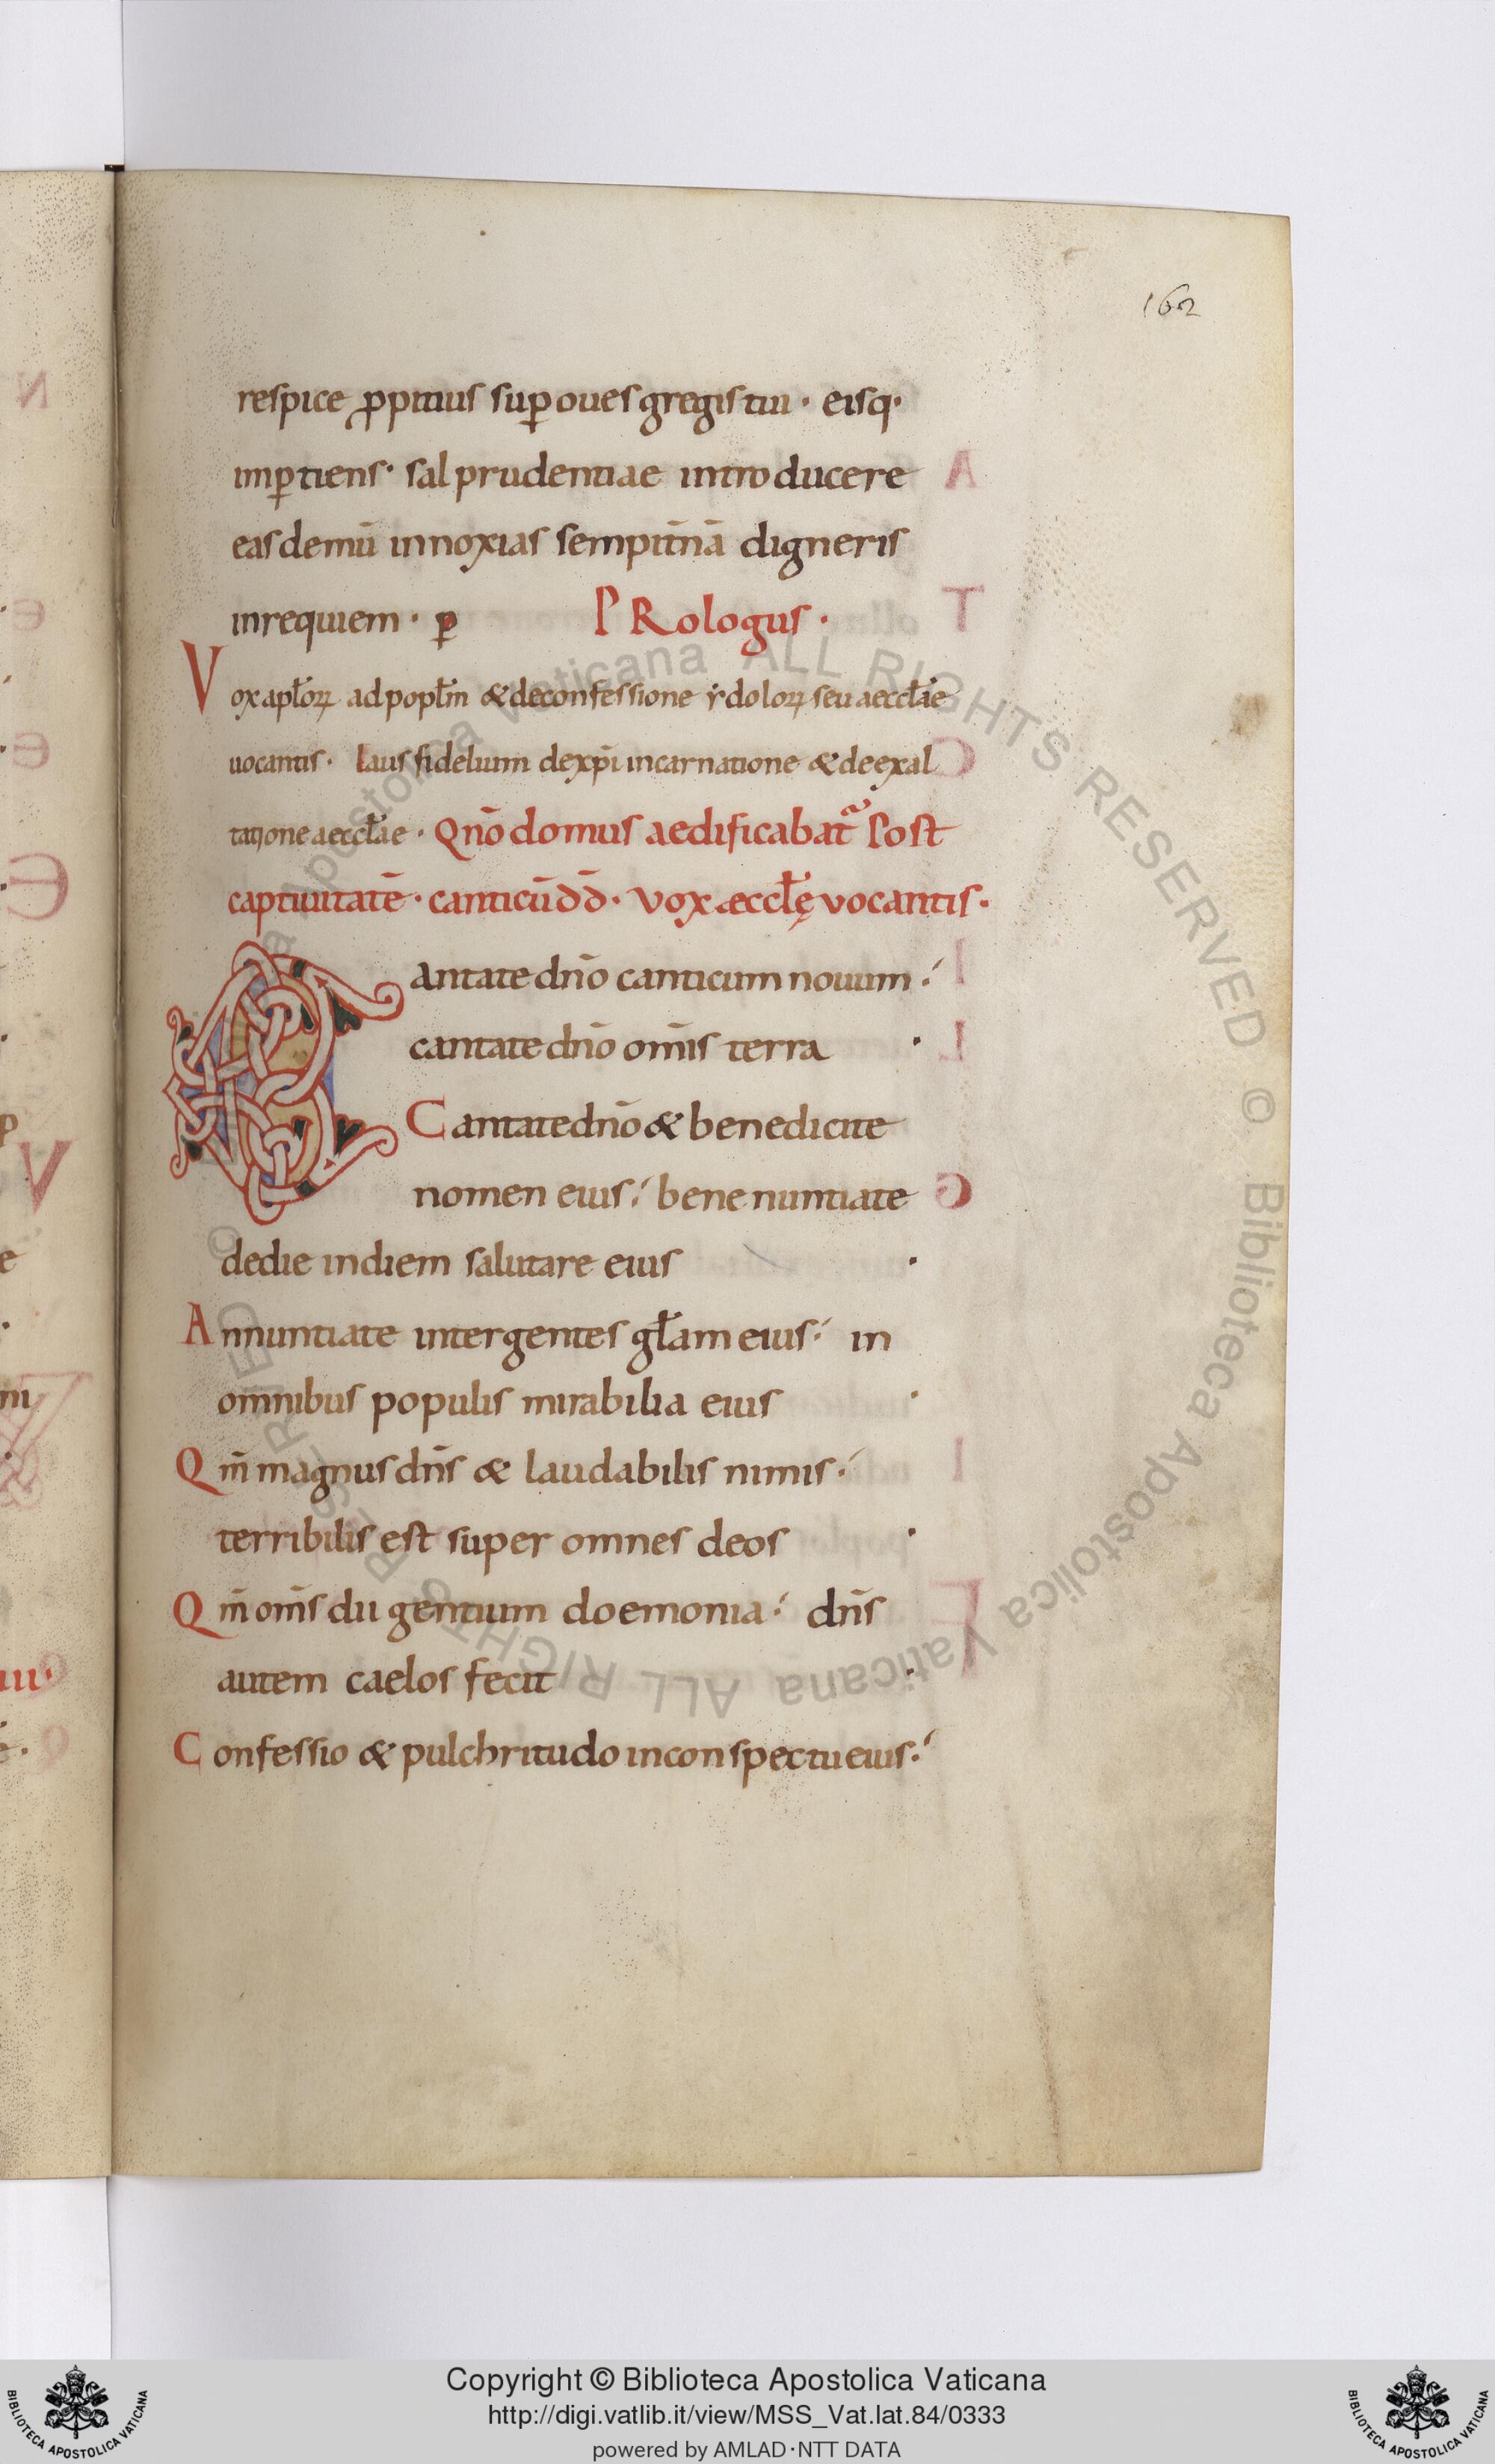 162
respice ꝓpitius suꝑ oues gregis tui · eisq·
imꝑtiens· sal prudentiae introducere
easdemū innoxias sempit̄nā digneris
in requiem · ꝑ PRologus ·
Vox apl̄oꝝ ad popl̄m & de confessione  doloꝝ seu aeccl̄ae
uocantis· laus fidelium de xp̄i incarnatione & de exal
tatione aeccl̄ae · Qn̄o domus aedificabat̄ᷓ Post
captiuitatē · canticū dd̄ · vox æccl̄ę vocantis ·
Cantate dn̄o canticum nouum ·
cantate dn̄o om̄is terra ·
Cantate dn̄o & benedicite
nomen eius · bene nuntiate
de die in diem salutare eius ·
Annuntiate inter gentes gl̄am eius · in
omnibus populis mirabilia eius ·
Qm̄ magnus dn̄s & laudabilis nimis ·
terribilis est super omnes deos ·
Qm̄ om̄s dii gentium doemonia · dn̄s
autem caelos fecit ·
Confessio & pulchritudo in conspectu eius ·
© Biblioteca Apostolica Vaticana ALL RIGHTS RESERVED © Biblioteca Apostolica Vaticana ALL RIGHTS RESERVED
BIBLIOTECA APOSTOLICA VATICANA
Copyright © Biblioteca Apostolica Vaticana
http://digi.vatlib.it/view/MSS_Vat.lat.84/0333
powered by AMLAD·NTT DATA
BIBLIOTECA APOSTOLICA VATICANA